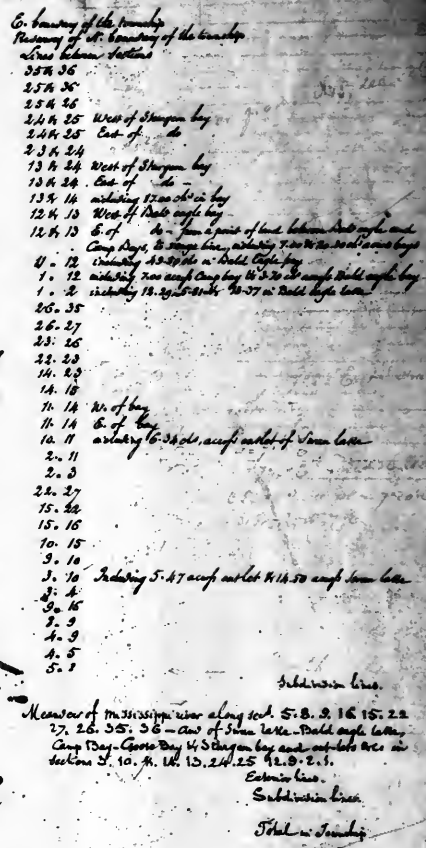 E. boundary of the township
Resurvey of N. boundary of the township
Lines between Sections
35 & 36
25 & 36
25 & 26
24 & 25 West of Sturgeon bay
24 & 25 East of do
23 & 24
13 & 24 West of Sturgeon bay
13 & 24 East of - do -
13 & 14 including 17.00 chs in bay
12 & 13 West of Bald eagle bay
12 & 13 E. of do - from a point of land between Bald eagle and
Camp Bays, to range line, including 7.00 & 20.30 chs across bays
11 - 12 including 43.29 chs in Bald Eagle bay
1 - 12 including 7.00 across Camp bay & 3.70 chs across Bald eagle bay
1 - 2 including 12.29, 5.21 & 10.37 in Bald eagle lake
26 - 35
26 - 27
23 - 26
22 - 23
14 - 23
14 - 15
11 - 14 W. of bay
11 - 14 E. of bay
10 - 11 including 6.34 chs, across outlet of Swan lake
2 - 11
2 - 3
22 - 27
15 - 22
15 - 16
10 - 15
9 - 10
3 - 10 Including 5.47 across outlet & 14.50 across Swan lake
3 - 4
9 - 16
8 - 9
4 - 9
4 - 5
5 - 8
Subdivision lines.
Meander of Mississippi river along sect. 5. 8. 9. 16 15. 22
27. 26. 35. 36 - And of Swan lake - Bald eagle lake,
Camp Bay - Goose Bay & Sturgeon bay and outlets &c in
sections 3. 10. 11. 14. 13. 24. 25 12. 9. 2. 1.
Exterior lines.
Subdivision lines.
Total in Township